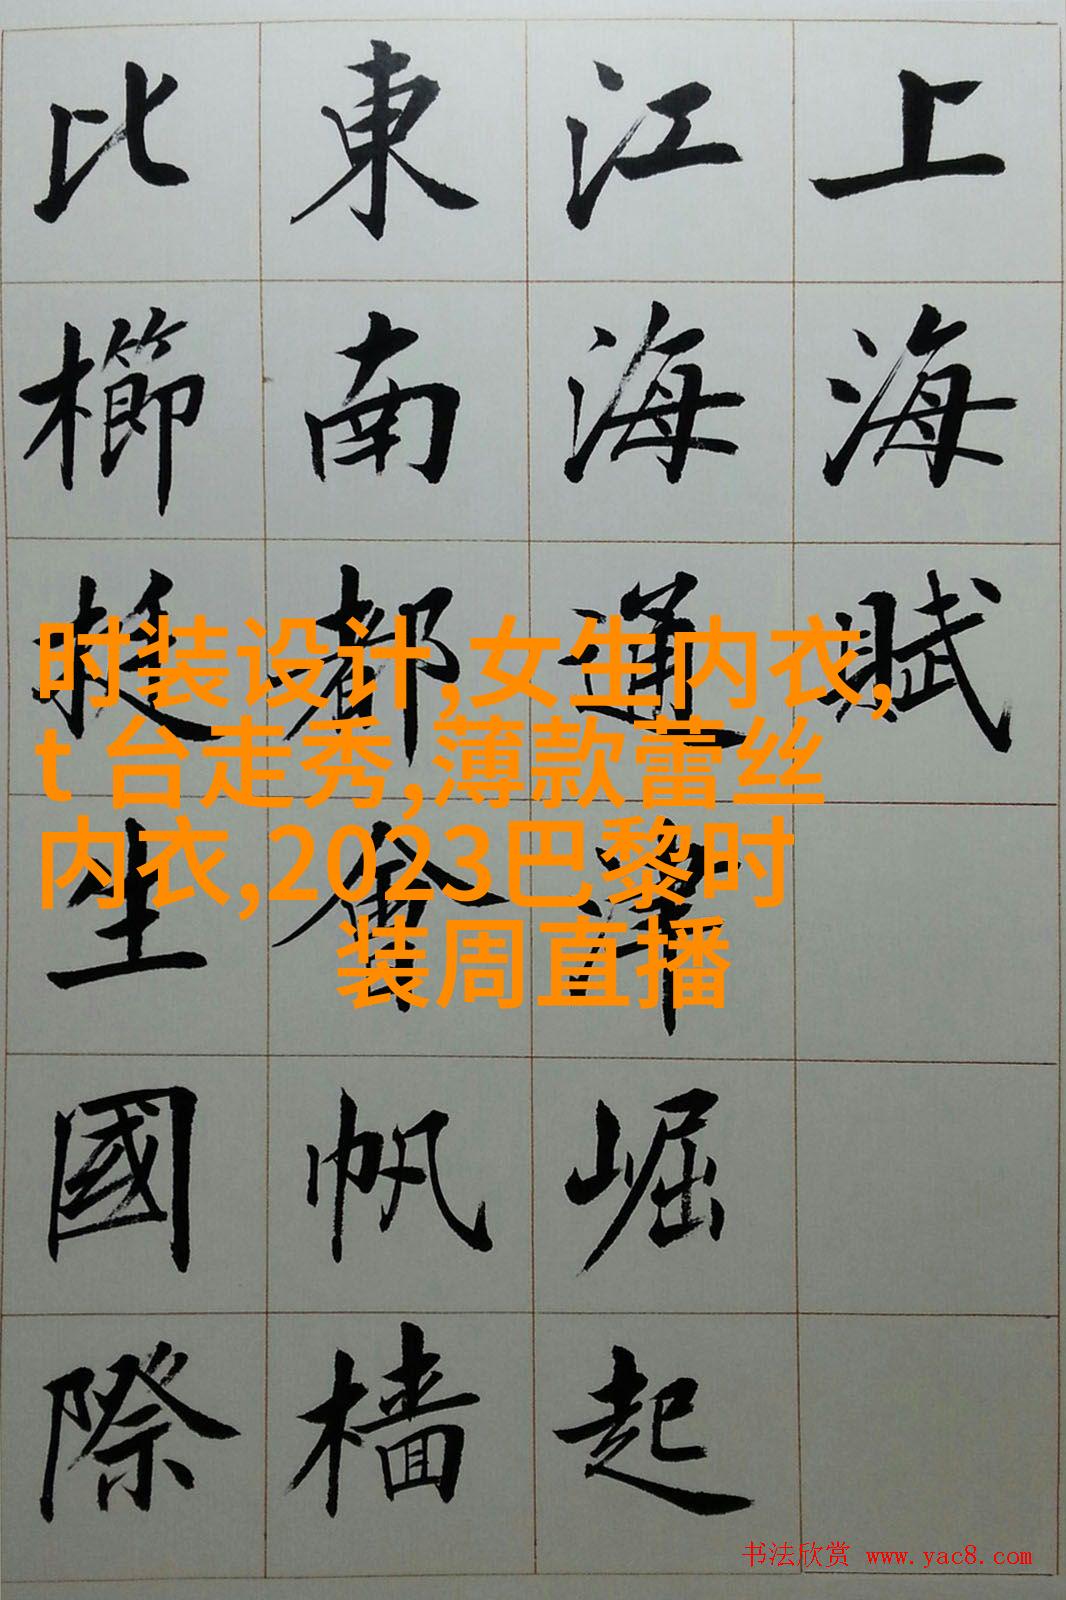 上海賦
江海通津崛起
東南都會帆檣
比櫛挺生國際
时装设计,女生内衣,
t 台走秀,薄款蕾丝
内衣,2023巴黎时
装周直播
书法欣赏 www.yac8.com